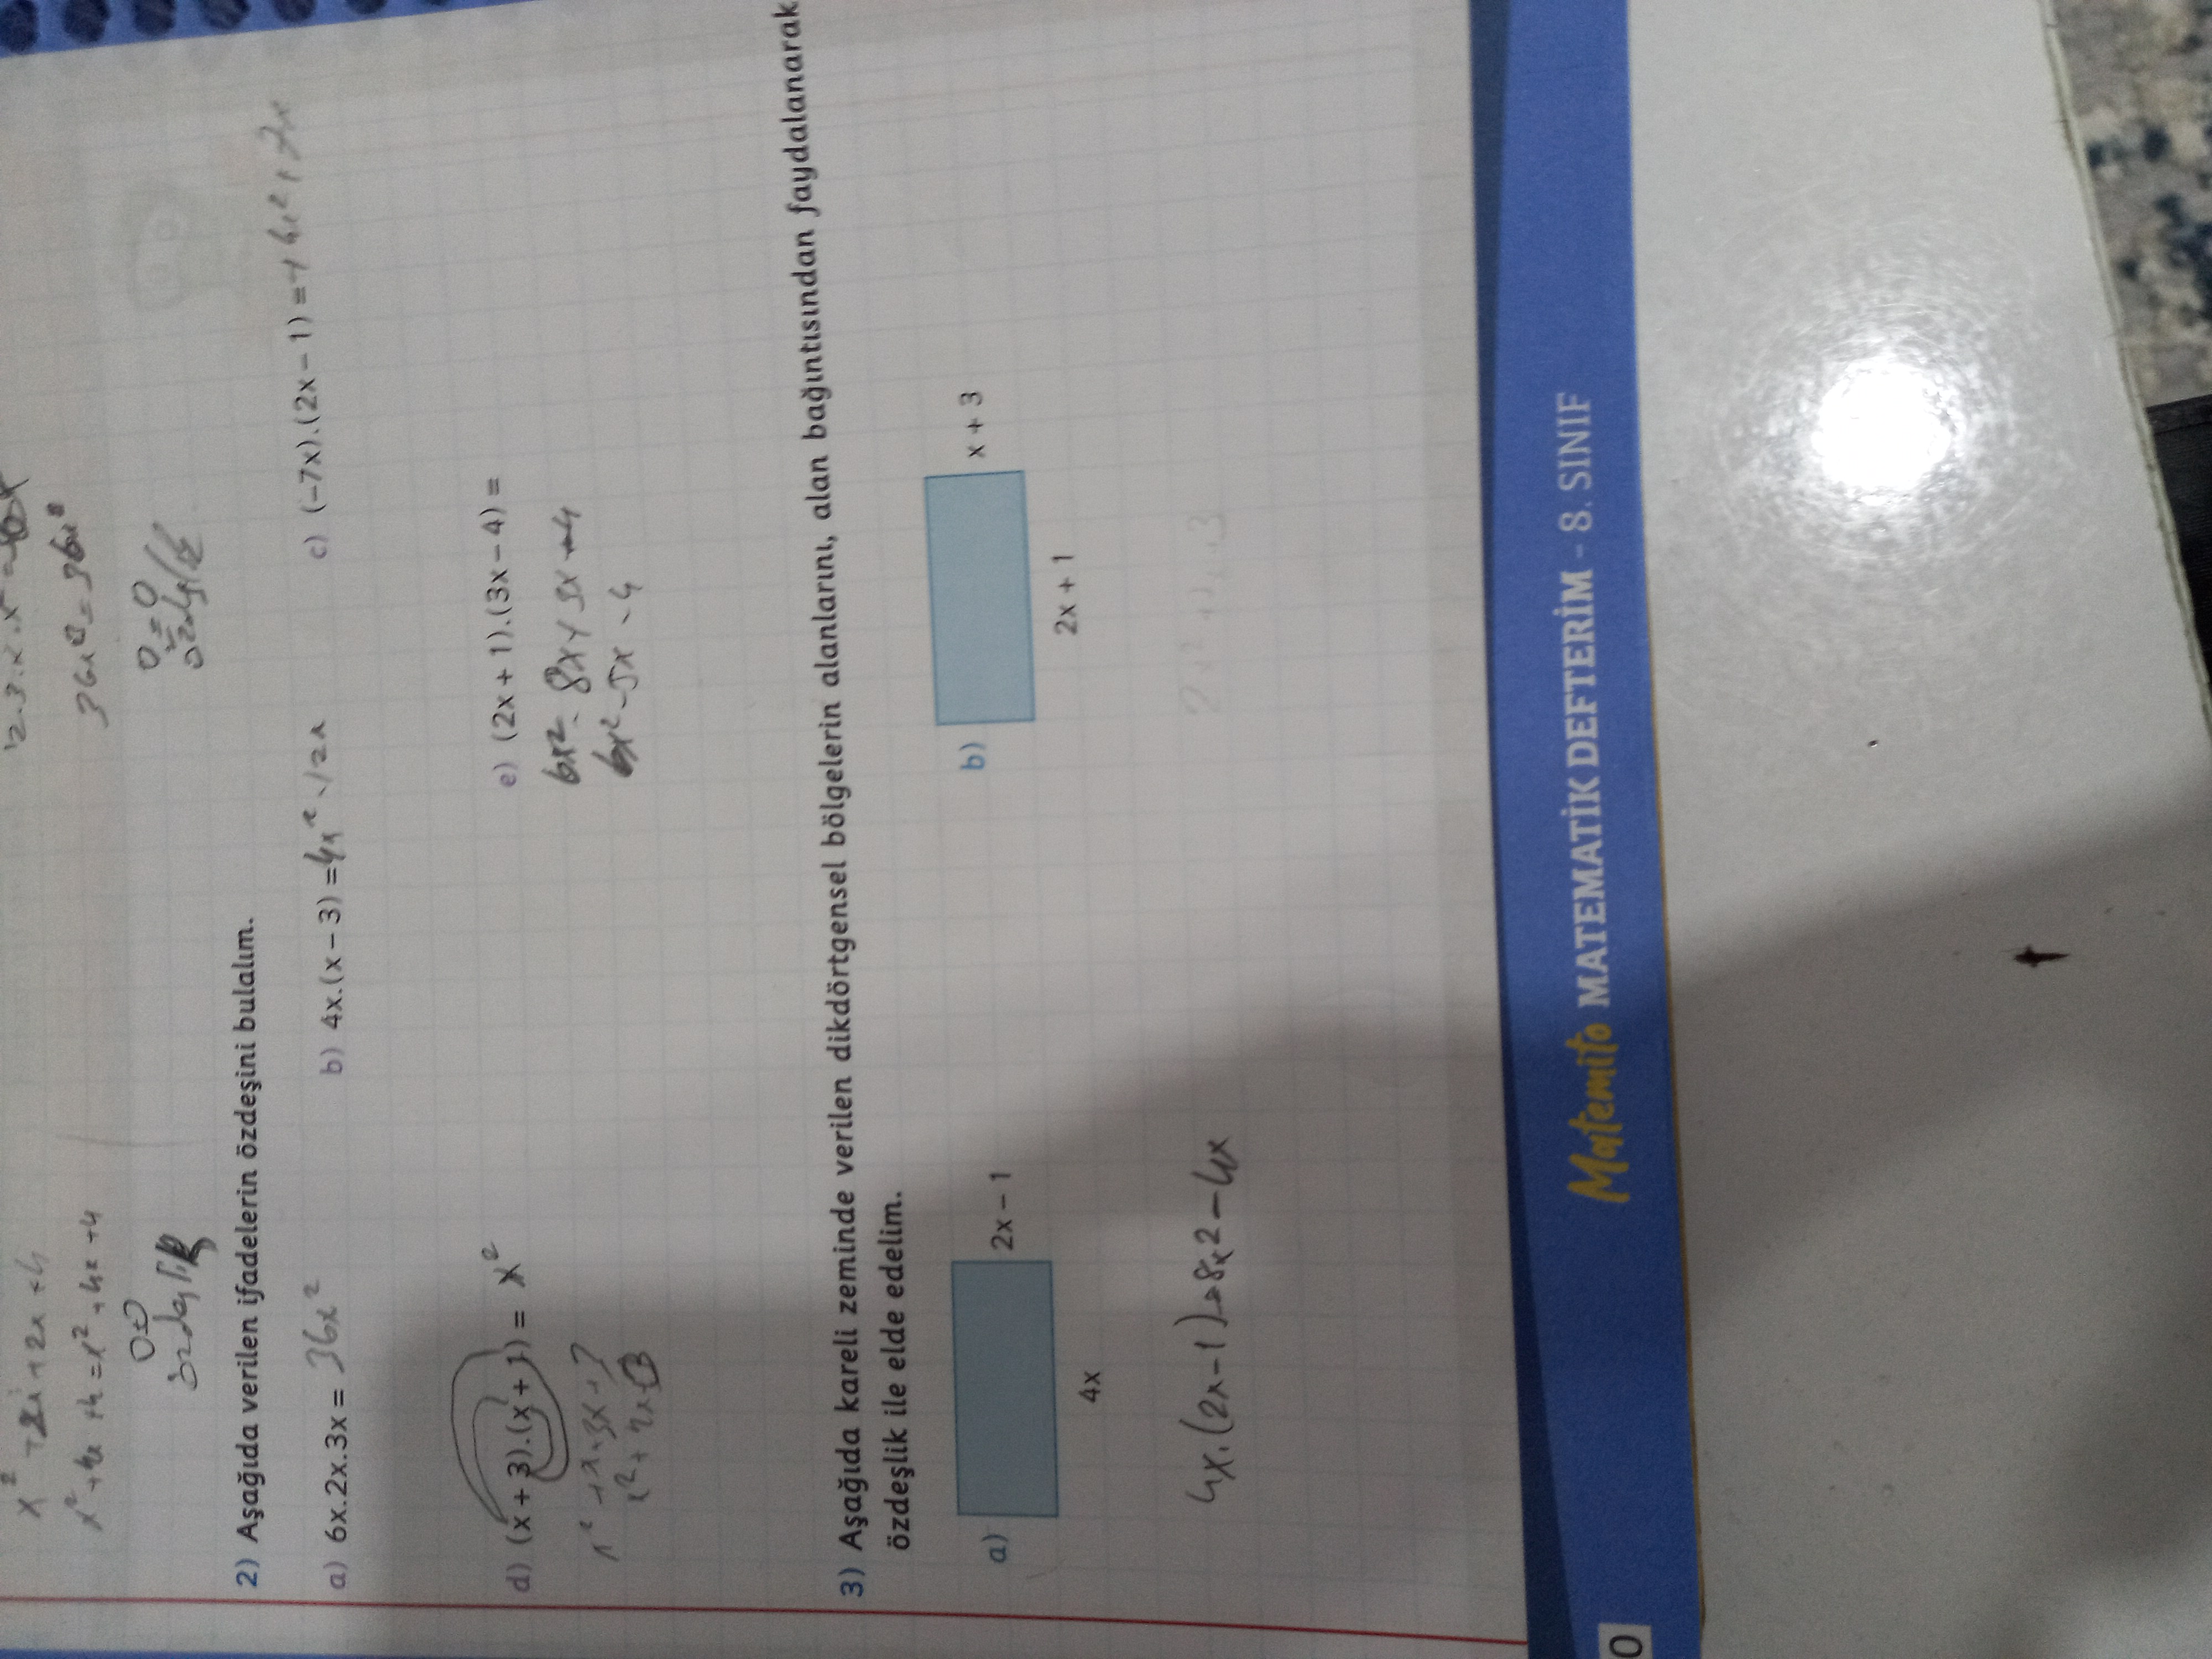 x² + 2x + 2x + 4
x² + 4x + 4 = x² + 4x + 4
36x³ = 36x³
0=0
özdeşlik
0=0
özdeşlik
2) Aşağıda verilen ifadelerin özdeşini bulalım.
a) 6x.2x.3x = 36x²
b) 4x.(x – 3) = 4x² - 12x
c) (–7x).(2x – 1) = 4x² + 7x
d) (x + 3).(x + 1) = x²
x² + x + 3x + 3
x² + 4x + 3
e) (2x + 1).(3x – 4) =
6x² - 8x + 3x - 4
6x² - 5x - 4
3) Aşağıda kareli zeminde verilen dikdörtgensel bölgelerin alanlarını, alan bağıntısından faydalanarak
özdeşlik ile elde edelim.
a) 2x – 1
4x
4x.(2x-1) = 8x2 - 4x
b) x + 3
2x + 1
0
Matemito MATEMATİK DEFTERİM - 8. SINIF